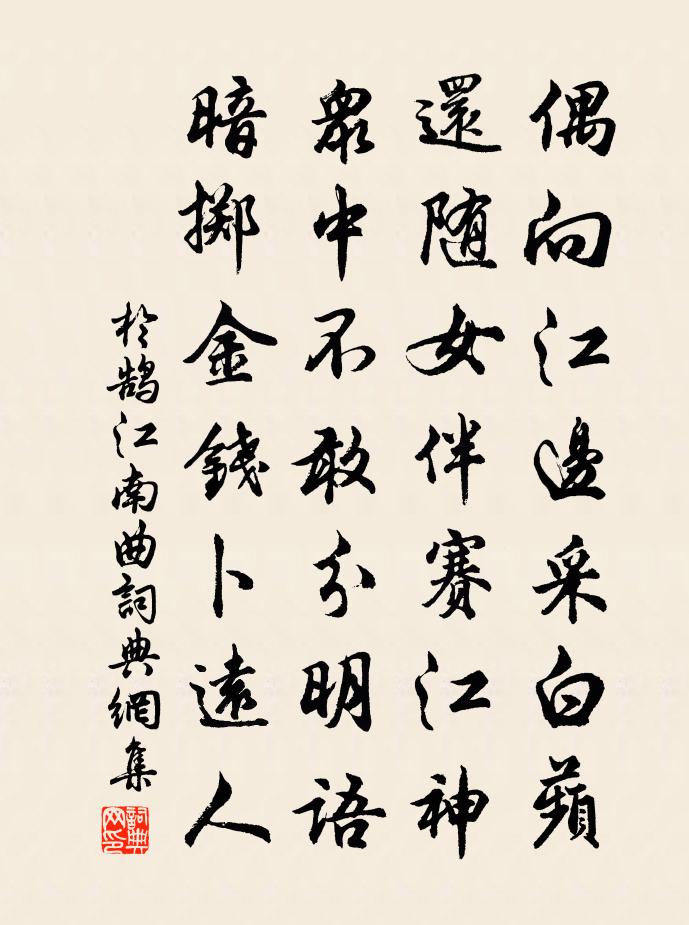 偶向江邊采白蘋
還随女伴賽江神
衆中不敢分明語
暗擲金錢卜遠人
於鵠江南曲詞典網集
詞典網印